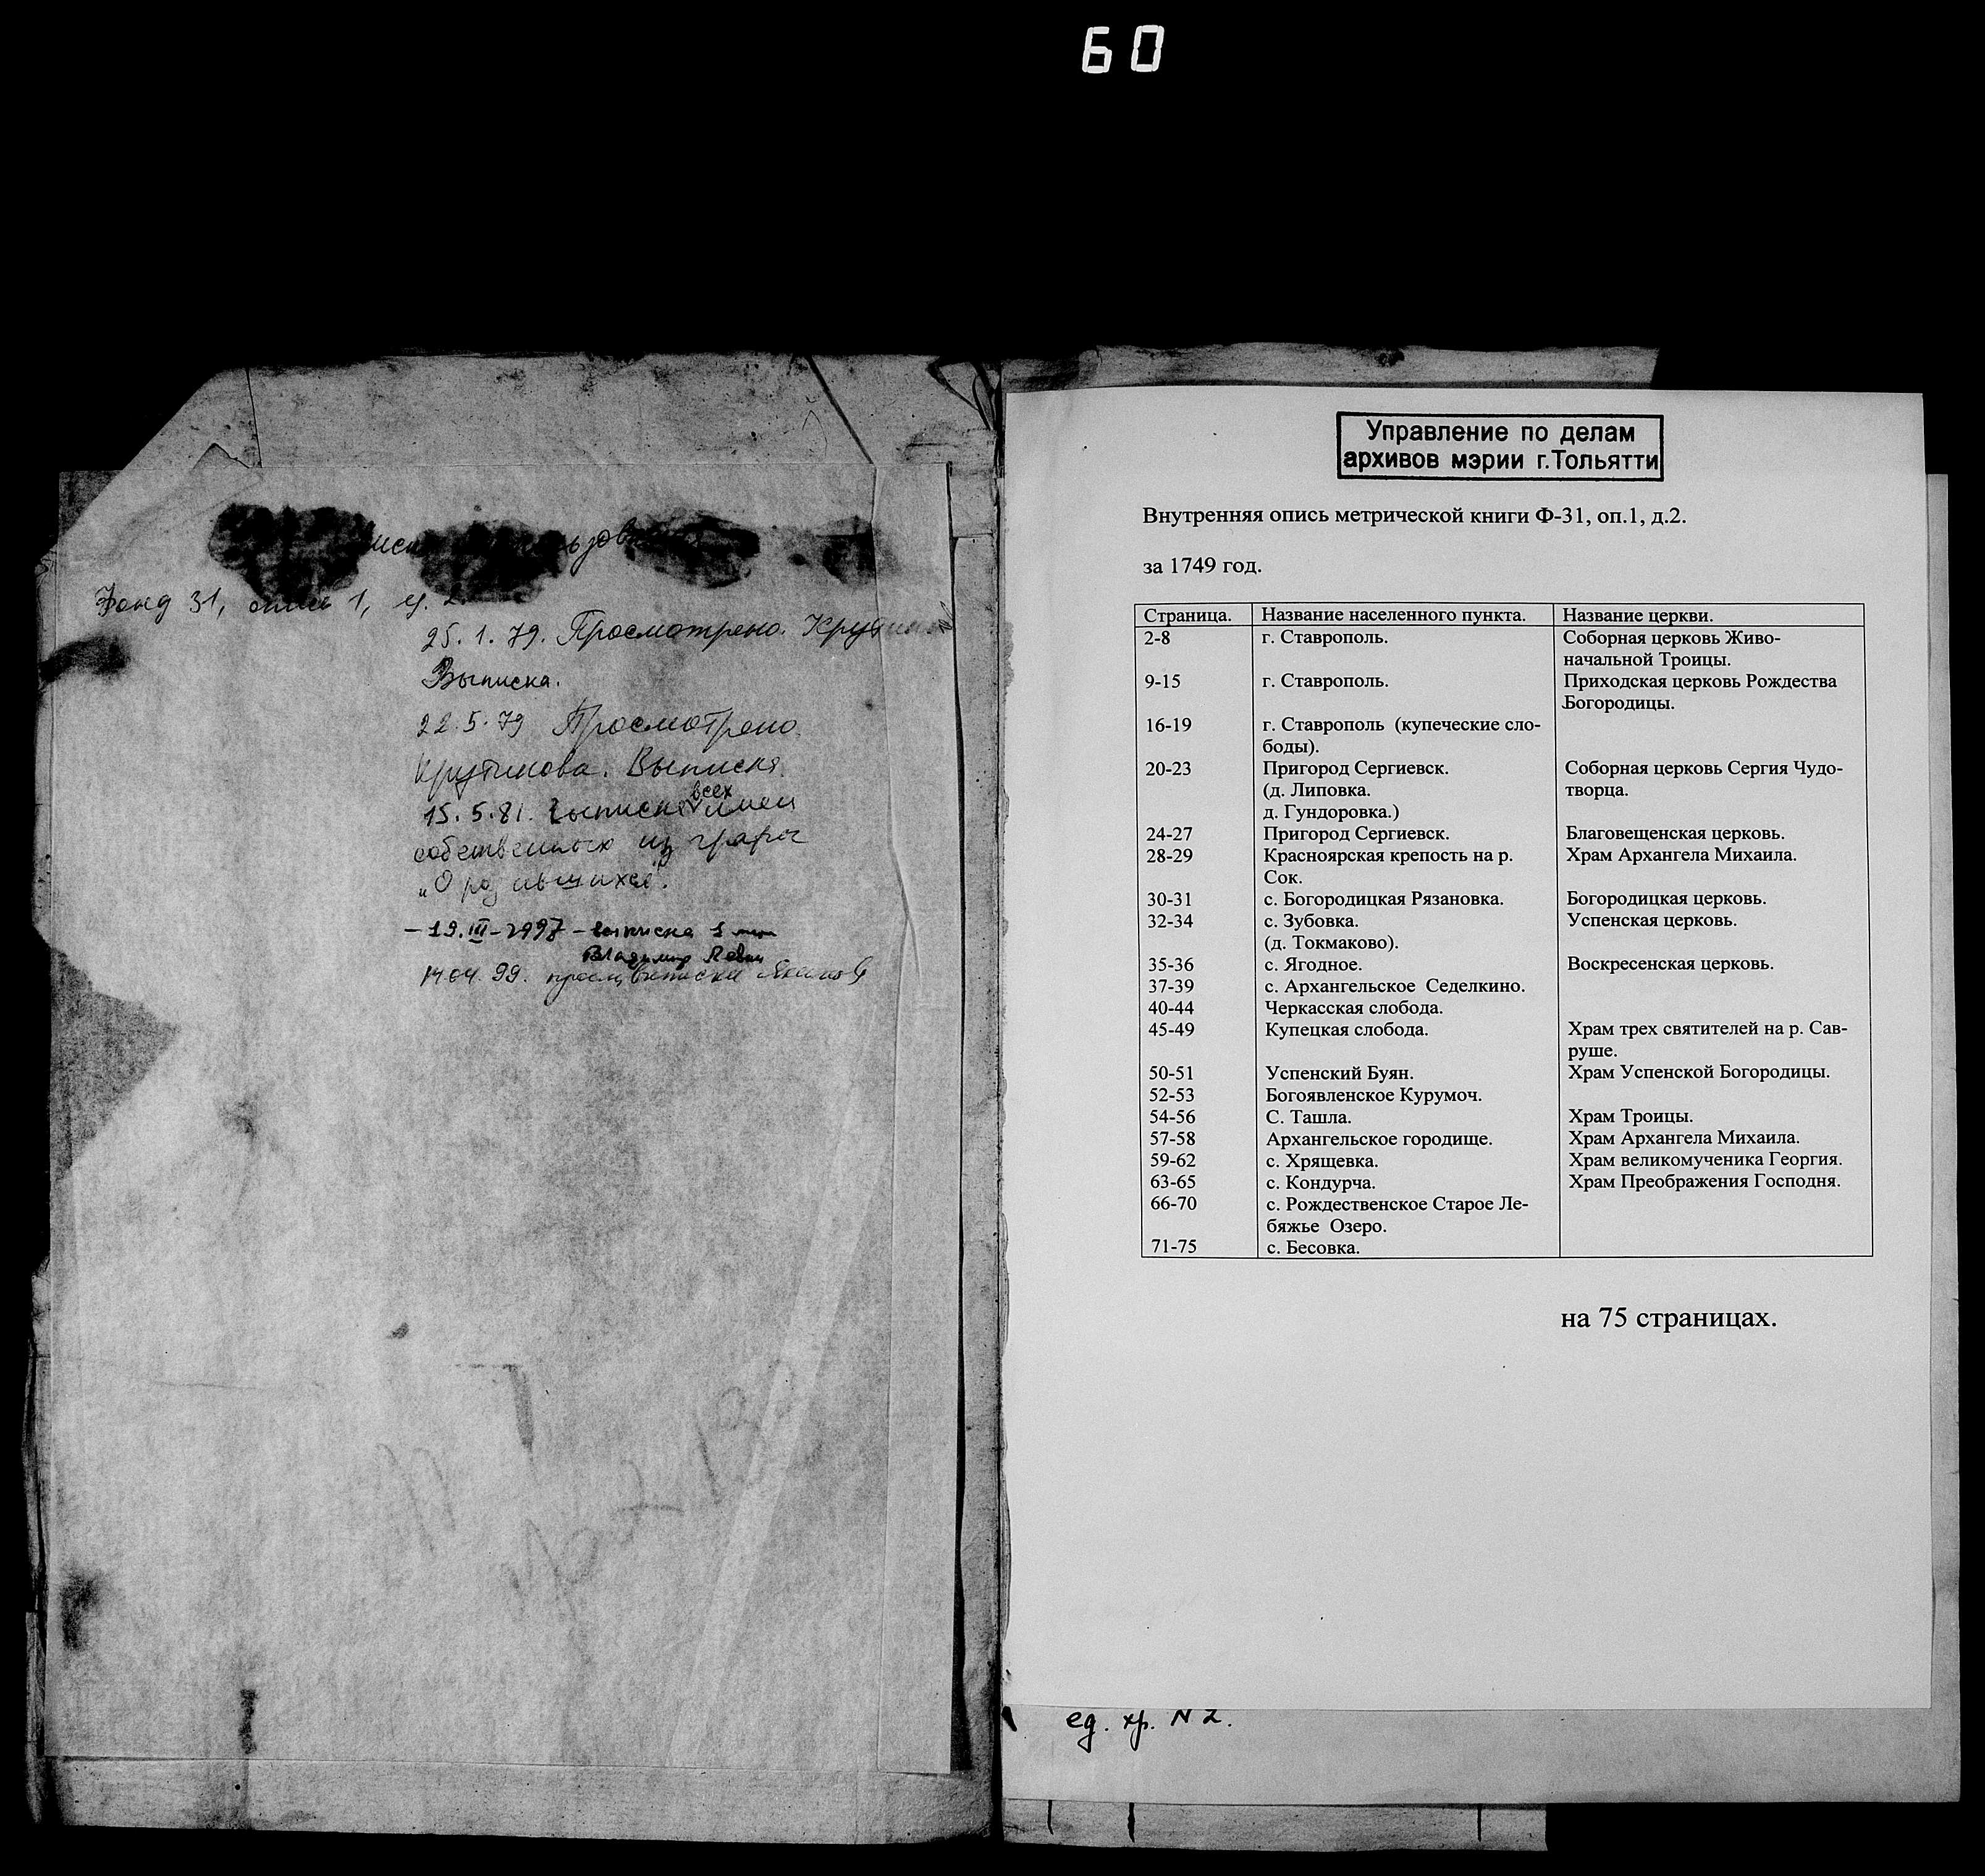 60
Фонд 31, опись 1, ед. 2
25.1.79. Просмотрено.
Выписка.
22.5.79 Просмотрено.
Крутикова. Выписка.
15.5.81. Выписка всех имен
собственных из графы
„О родившихся".
-19.III-1997 - выписка 1
Владимир
14.04.99. выписки
Управление по делам
архивов мэрии г.Тольятти
Внутренняя опись метрической книги Ф-31, оп.1, д.2.
за 1749 год.
Страница. Название населенного пункта. Название церкви.
2-8 г. Ставрополь. Соборная церковь Живо-
начальной Троицы.
9-15 г. Ставрополь. Приходская церковь Рождества
Богородицы.
16-19 г. Ставрополь (купеческие сло-
боды).
20-23 Пригород Сергиевск. Соборная церковь Сергия Чудо-
(д. Липовка. творца.
д. Гундоровка.)
24-27 Пригород Сергиевск. Благовещенская церковь.
28-29 Красноярская крепость на р. Храм Архангела Михаила.
Сок.
30-31 с. Богородицкая Рязановка. Богородицкая церковь.
32-34 с. Зубовка. Успенская церковь.
(д. Токмаково).
35-36 с. Ягодное. Воскресенская церковь.
37-39 с. Архангельское Седелкино.
40-44 Черкасская слобода.
45-49 Купецкая слобода. Храм трех святителей на р. Сав-
руше.
50-51 Успенский Буян. Храм Успенской Богородицы.
52-53 Богоявленское Курумоч.
54-56 С. Ташла. Храм Троицы.
57-58 Архангельское городище. Храм Архангела Михаила.
59-62 с. Хрящевка. Храм великомученика Георгия.
63-65 с. Кондурча. Храм Преображения Господня.
66-70 с. Рождественское Старое Ле-
бяжье Озеро.
71-75 с. Бесовка.
на 75 страницах.
ед. хр. N 2.